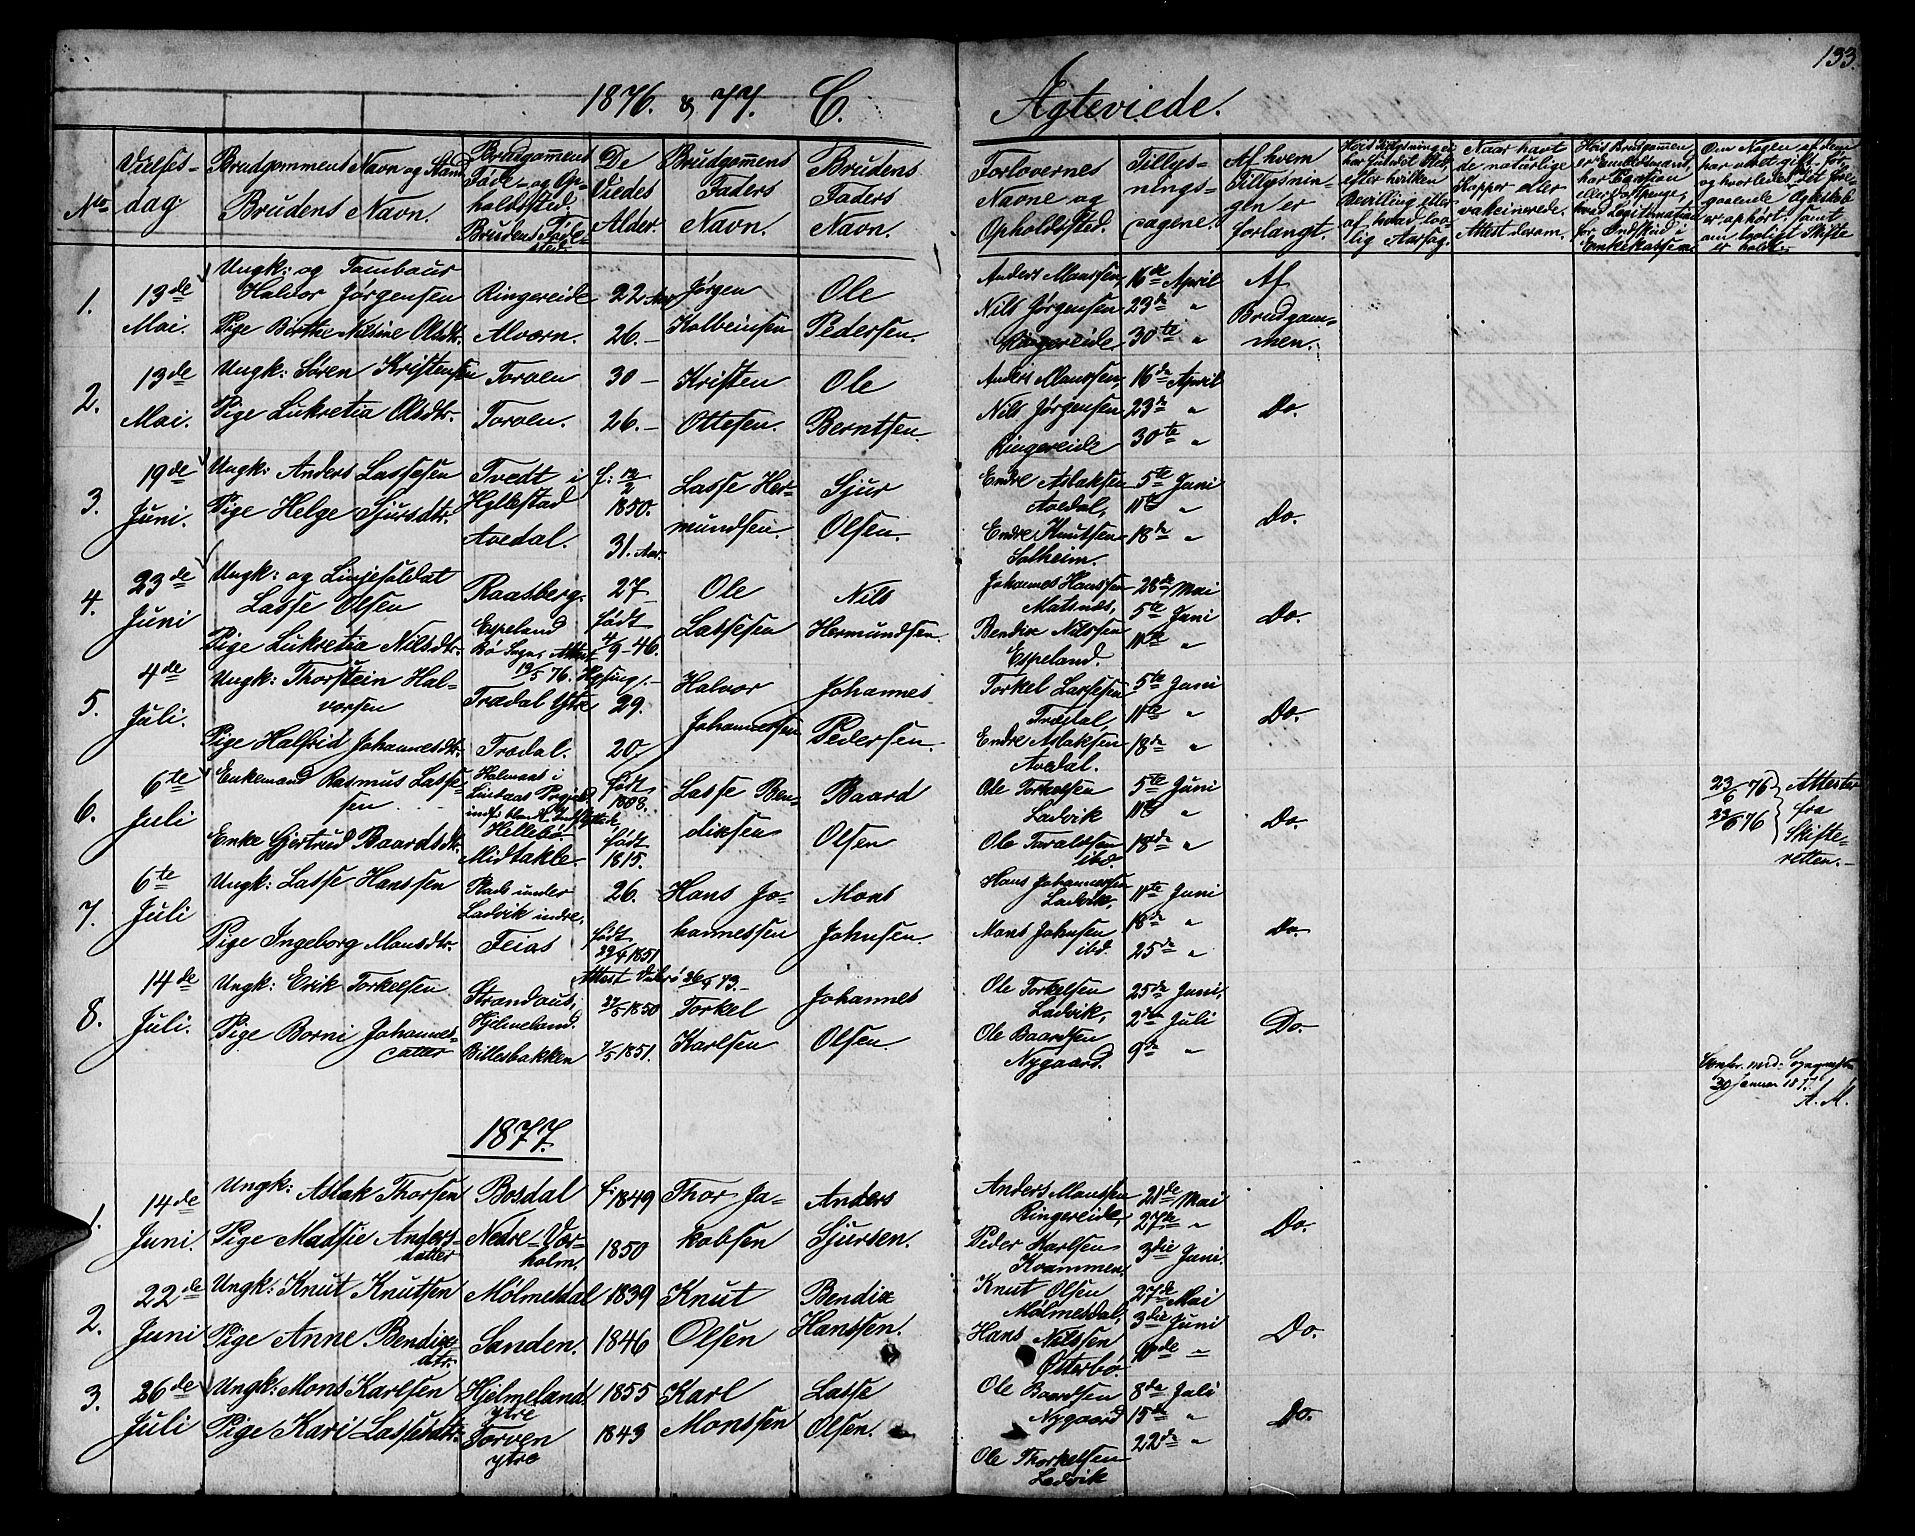 133.
1876. & 77. C. Ægteviede.
No
Vielses-
dag
Brudgommens Navn og Stand
Brudens Navn.
Brudgommens
Føde- og Op-
holdssted.
Brudens Føde-
sted.
De
Viedes
Alder.
Brudgommens
Faders
Navn.
Brudens
Faders
Navn.
Forlovernes
Navne og
Opholdssted.
Tillys-
nings-
dagene.
Af hvem
Tillysnin-
gen er
forlangt.
Hvis Tillysning ei
har fundet Sted,
efter hvilken
Bevilling eller
af hvad lov-
lig Aarsag.
Naar havt
de naturlige
Kopper eller
vakcinerede.
Attest derom.
Hvis Brudgommen
er Embedsmand,
har Pension
eller
hvad Legitimation
for Indskud i
Enkekassen.
Om Nogen af dem
har været gift før,
og hvorledes det fore-
gaaende Ægteskab
er ophørt, samt
om lovligt Skifte
er holdt.
1.
13de
Mai.
Ungk: og Tambour
Halvor Jørgensen
Pige Birthe Nilsine Olsdtr.
Ringereide
Alværn.
22 Aar
26.-
Jørgen
Kolbeinsen
Ole
Pedersen.
Anders Monssen,
Nils Jørgensen
Ringereide.
16de April
23de "
30te "
Af
Brudgom-
men.
2.
13de
Mai.
Ungk: Søren Kristensen
Pige Lukretia Olsdtr.
Torven
Torven.
30 -
26.-
Kristen
Ottesen.
Ole
Berntsen.
Anders Monssen,
Nils Jørgensen
Ringereide
16de April
23de "
30te "
Do.
3.
19de
Juni.
Ungk: Anders Lassesen
Pige Helge Sjursdtr.
Tvedt i
Hyllestad
Avedal.
f: 12/2
1850.
31. Aar.
Lasse Her-
mundsen.
Sjur
Olsen.
Endre Aslaksen
Avedal,
Endre Knutsen
Solheim.
5te Juni
11te "
18de "
Do.
4.
23de
Juni
Ungk: og Linjesoldat
Lasse Olsen
Pige Lukretia Nilsdtr.
Raasberg.
Espeland
Bø Sogn, Attest
19/5 76. Hysing.-
27-
født
4/9-46.
Ole
Lassesen
Nils
Hermundsen.
Johannes Hanssen
Matsnæs,
Bendix Nilssen
Espeland.
28de Mai
5te Juni
11te "
Do.
5.
4de
Juli.
Ungk: Thorstein Hal-
vorsen
Pige Halfrid Johannesdtr.
Trædal Ytre
Trædal.
29.
20
Halvor
Johannessen
Johannes
Pedersen.
Torkel Lassesen
Trædal,
Endre Aslaksen
Avedal.
5te Juni
11te "
18de "
Do.
6.
6te
Juli
Enkemand Rasmus Lasse-
sen.
Enke Gjertrud Baardsdtr.
Holmaas i
Lindaas
Hellebø
Midtakle.
født
1808.
født
1815.
Lasse Ben-
diksen
Baard
Olsen
Ole Torkelsen
Ladvik
Ole Taraldsen
ibd.
5te Juni
11te "
18de "
Do.
23/6 76
76
Attester
fra
Skifte-
retten.-
7.
6te
Juli
Ungk: Lasse Hanssen
Pige Ingeborg Monsdtr.
Plads under
Ladvik indre,
Feias
26.
født
29/4 1851
Hans Jo-
hannessen
Mons
Johnsen.
Hans Johannessen
Ladvik,
Mons Johnsen
ibd.
11te Juni
18de "
25de "
Do.
8.
14de
Juli.
Ungk: Erik Torkelsen
Pige Borni Johannes-
datter
Strandaus,
Hjelmeland.
Billesbakken
27/5 1850
7/5 1851.
Torkel
Karlsen
Johannes
Olsen
Ole Torkelsen
Ladvik,
Ole Baardsen
Nygaard.
25de Juni,
2den Juli
9de "
Do.
30 Januar
A. M.
1877.
1.
14de
Juni.
Ungk: Aslak Thorsen
Pige Madsie Anders-
datter
Bosdal
Nedre-Vær-
holm.
f: 1849
1850
Thor Ja-
kobsen
Anders
Sjursen.
Anders Monssen
Ringereide,
Peder Karlsen
Kvammen.
21de Mai
27de "
3die Juni.
Do.
2.
22de
Juni
Ungk: Knut Knutsen
Pige Anne Bendix-
dtr.
Mølmesdal
Sanden.
1839
1846
Knut
Olsen
Bendix
Hanssen.
Knut Olsen
Mølmesdal,
Hans Nilssen
Østerbø.
27de Mai
3die Juni
10de "
Do.
3.
26de
Juli
Ungk: Mons Karlsen
Pige Kari Lassesdtr.
Hjelmeland
ytre
Torven
ytre
1855
1843
Karl
Monssen
Lasse
Olsen.
Ole Baardsen
Nygaard
Ole Thorkelsen
Ladvik
8de Juli
15de "
22de "
Do.